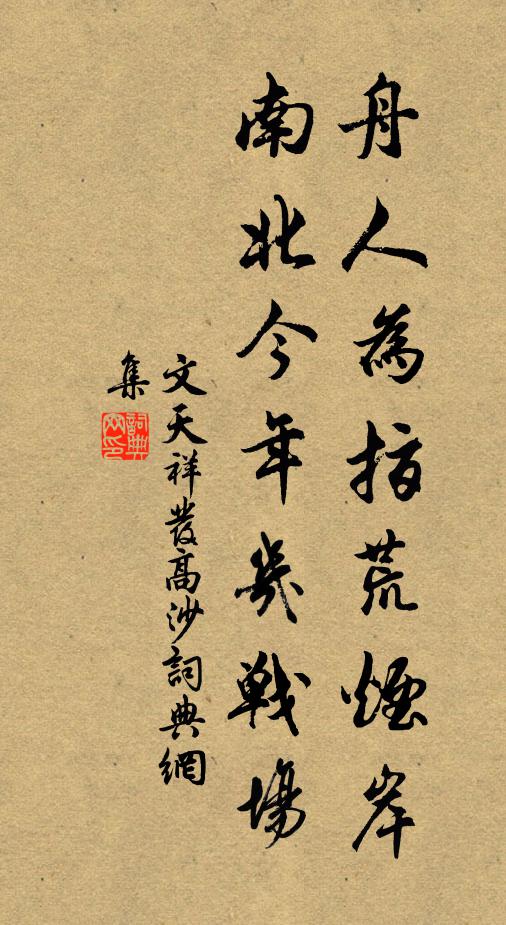 舟人為指荒煙岸
南北今年幾戰場
文天祥發高沙詞典網
集
詞典網印